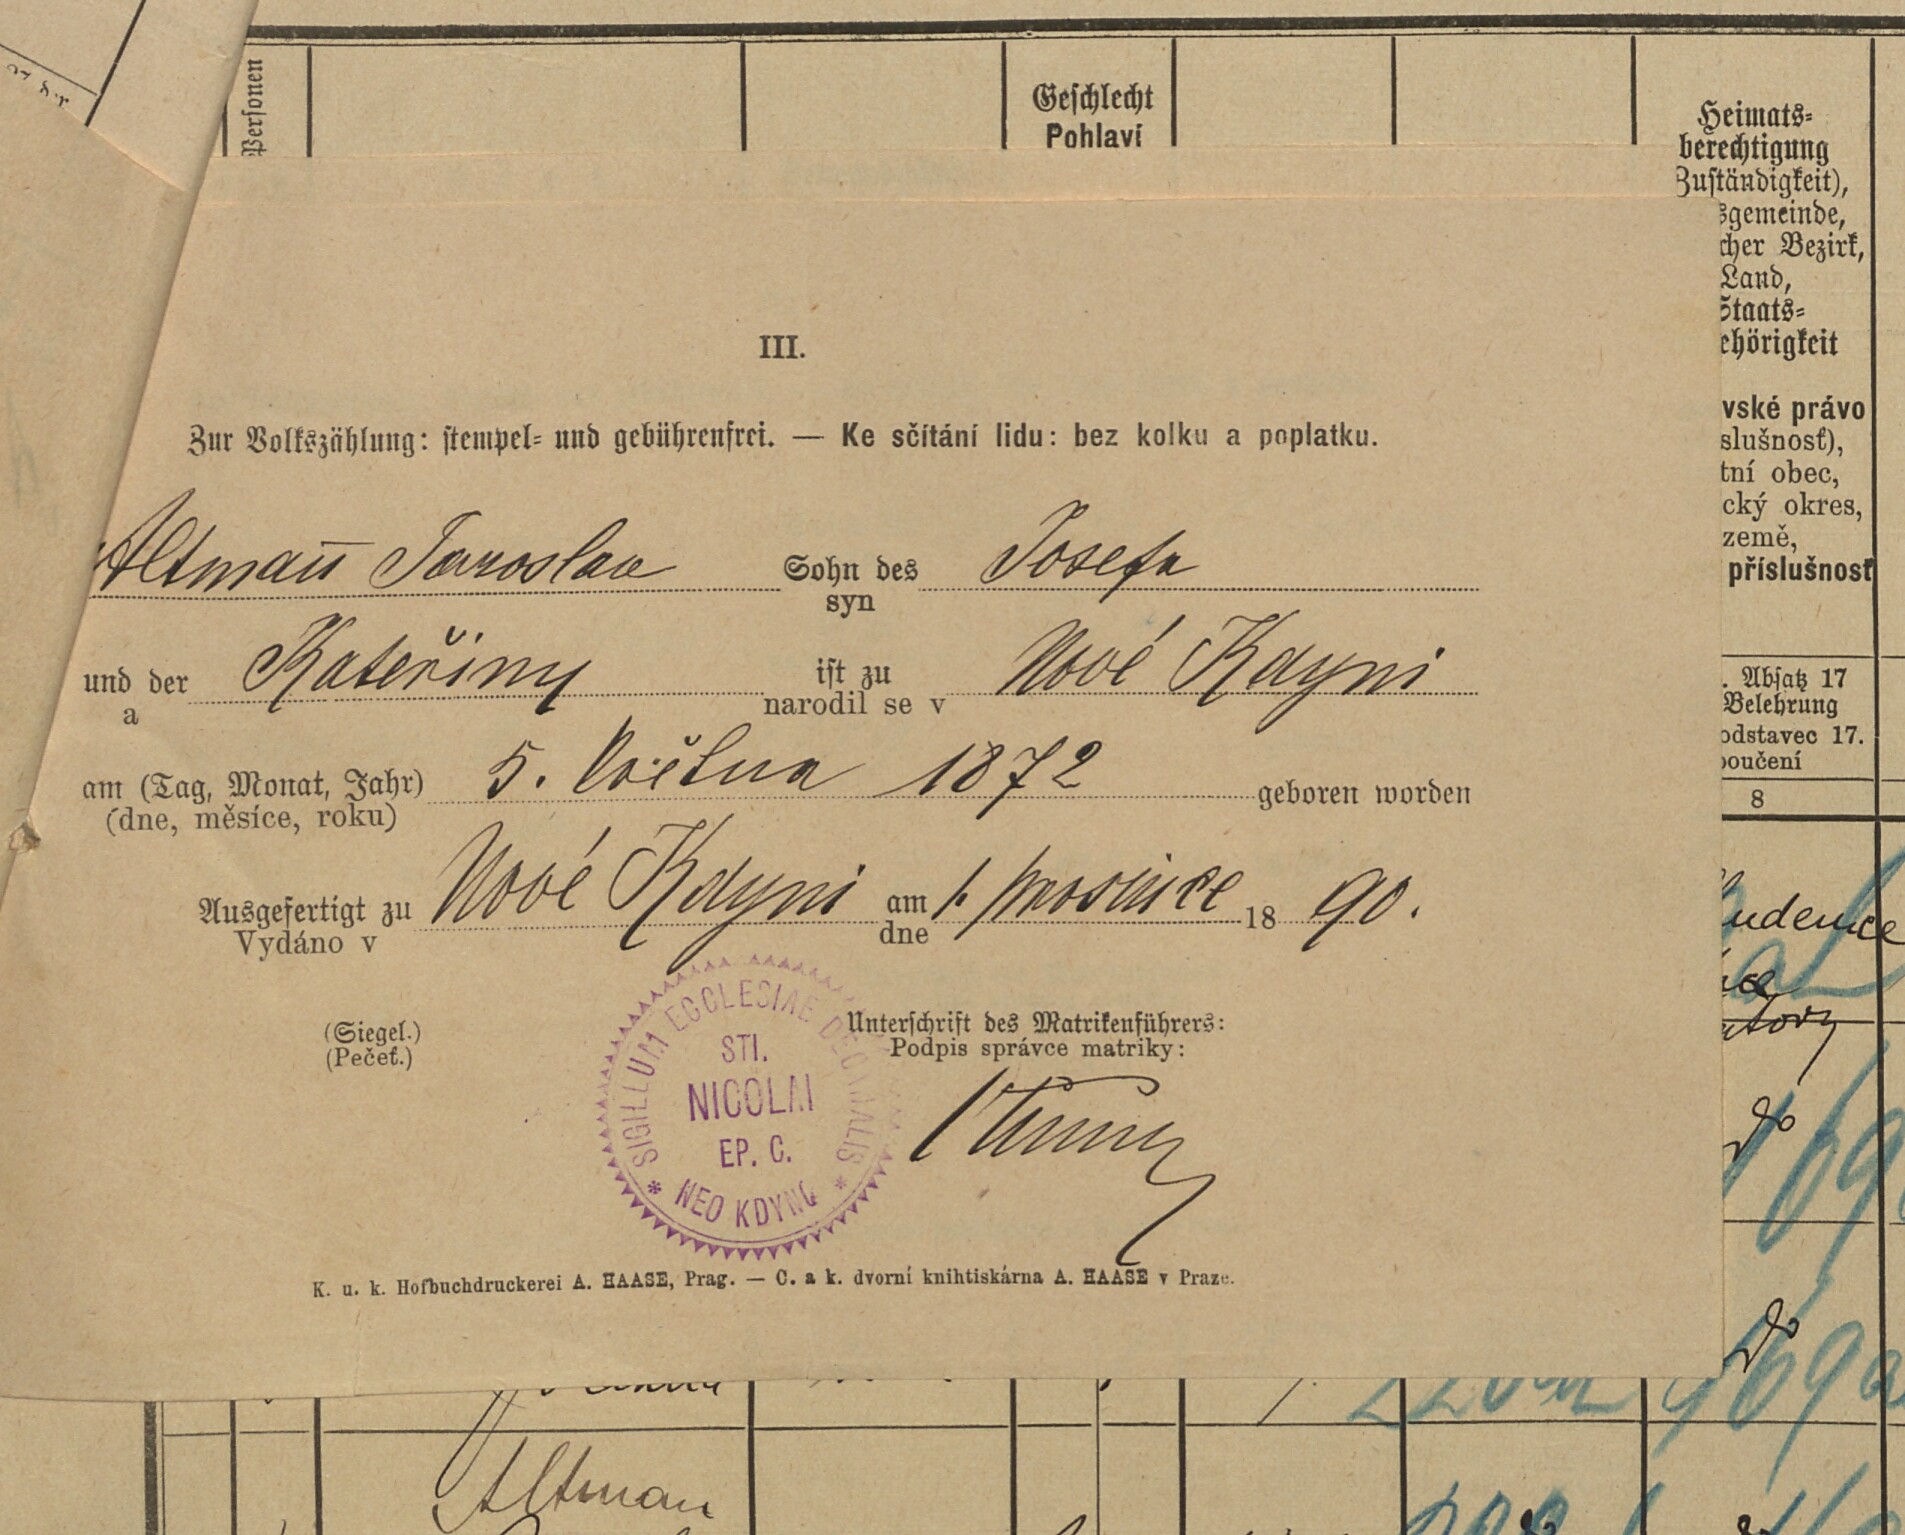 Personen
Geschlecht
Pohlaví
Heimats-
berechtigung
Zuständigkeit),
sgemeinde,
cher Bezirk,
Land,
Staats-
ehörigkeit
vské právo
slušnosť),
tní obec,
cký okres,
země,
příslušnosť
. Absatz 17
Belehrung
odstavec 17.
poučení
8
III.
Zur Volkszählung: stempel- und gebührenfrei. — Ke sčítání lidu: bez kolku a poplatku.
Altmann Jaroslav Sohn des Josefa
syn
und der Kateřiny ist zu Nové Kdyni
a narodil se v
am (Tag, Monat, Jahr) 5. května 1872 geboren worden
(dne, měsíce, roku)
Ausgefertigt zu Nové Kdyni am 1. prosince 18 90.
Vydáno v dne
(Siegel.)
(Pečeť.)
SIGILLUM ECCLESIAE DECANALIS
STI.
NICOLAI
EP. C.
* NEO KDYNO *
Unterschrift des Matrikenführers:
Podpis správce matriky:
K. u. k. Hofbuchdruckerei A. HAASE, Prag. — C. a k. dvorní knihtiskárna A. HAASE v Praze.
Altman